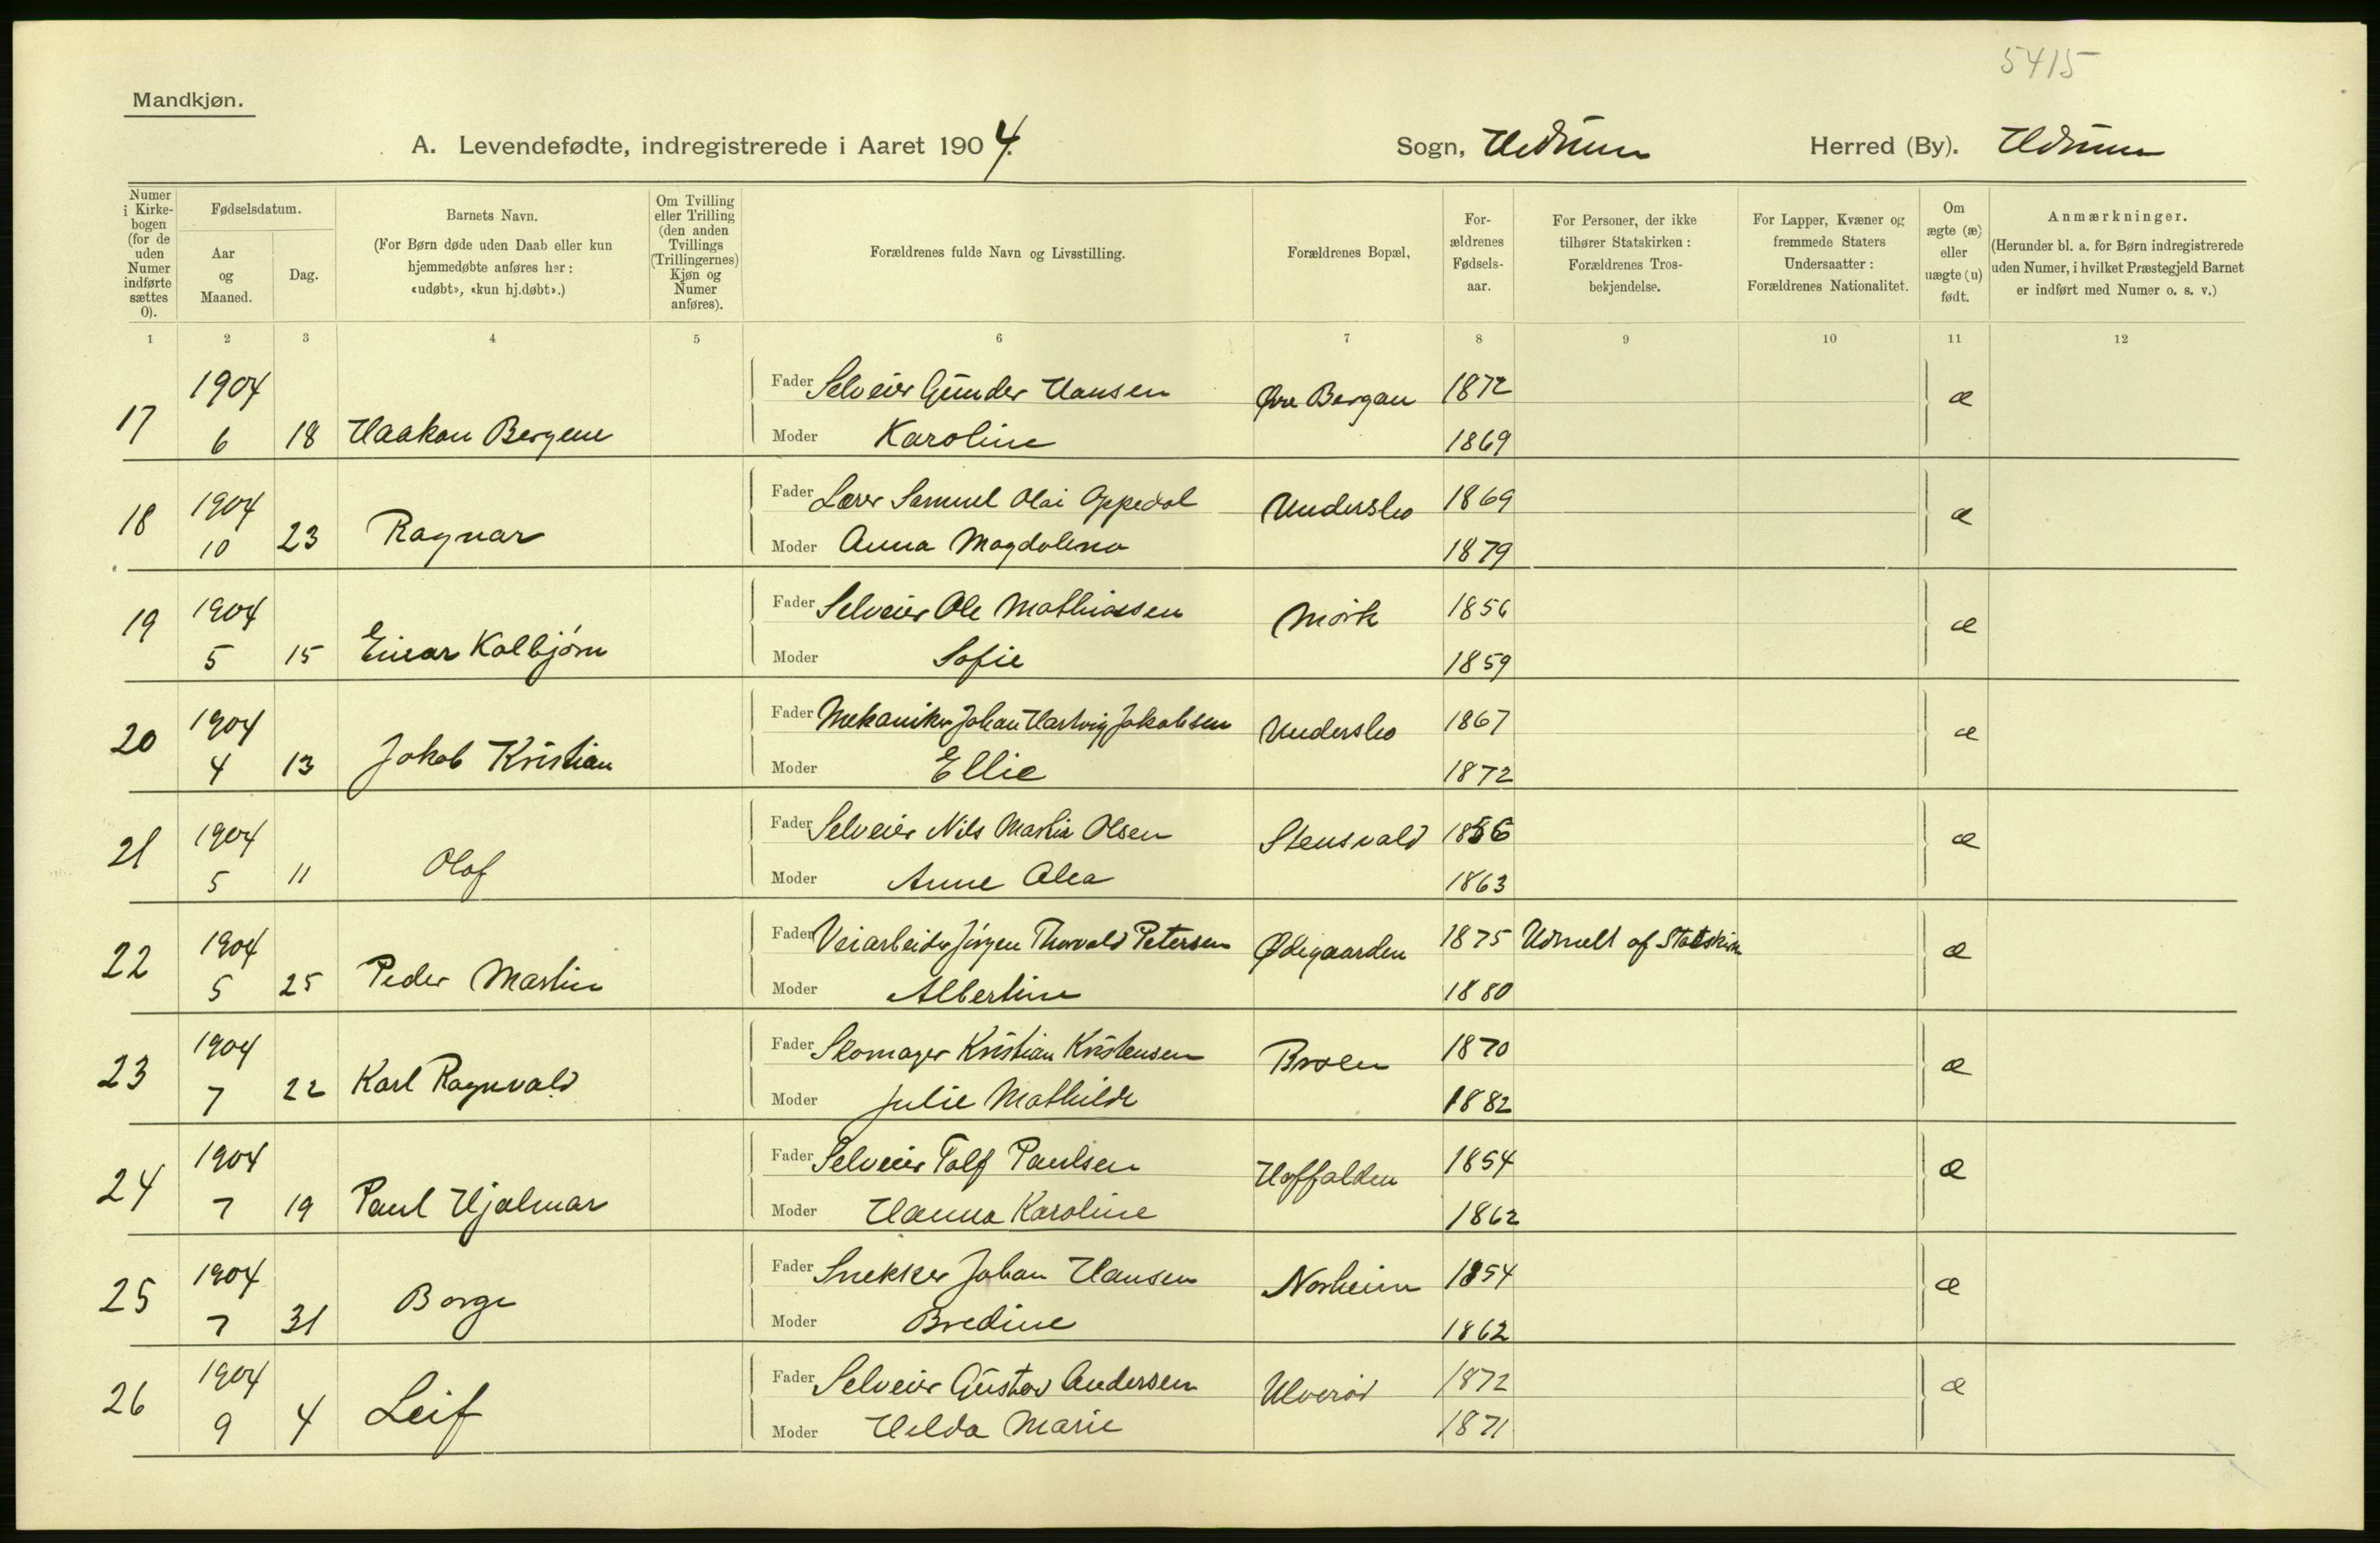 5415
Mandkjøn.
A. Levendefødte, indregistrerede i Aaret 1904. Sogn, Hedrum Herred (By). Hedrum
Numer i Kirkebogen (for de uden Numer indførte sættes 0).
Fødselsdatum.
Aar og Maaned.
Dag.
Barnets Navn.
(For Børn døde uden Daab eller kun hjemmedøbte anføres her: «udøbt», «kun hj.døbt».)
Om Tvilling eller Trilling (den anden Tvillings (Trillingernes) Kjøn og Numer anføres).
Forældrenes fulde Navn og Livsstilling.
Forældrenes Bopæl,
Forældrenes Fødselsaar.
For Personer, der ikke tilhører Statskirken: Forældrenes Trosbekjendelse.
For Lapper, Kvæner og fremmede Staters Undersaatter: Forældrenes Nationalitet.
Om ægte (æ) eller uægte (u) født.
Anmærkninger.
(Herunder bl. a. for Børn indregistrerede uden Numer, i hvilket Præstegjeld Barnet er indført med Numer o. s. v.)
1 2 3 4 5 6 7 8 9 10 11 12
17 1904 6 18 Haakon Bergene Fader Selveier Gunder Hansen Øvre Bergan 1872 æ
Moder Karoline 1869
18 1904 10 23 Ragnar Fader Lærer Samuel Olai Oppedal Undersbo 1869 æ
Moder Anna Magdalena 1879
19 1904 5 15 Einar Kolbjørn Fader Selveier Ole Mathiassen Mørk 1856 æ
Moder Sofie 1859
20 1904 4 13 Jakob Kristian Fader Mekaniker Johan Hartvig Jakobsen Undersbo 1867 æ
Moder Ellie 1872
21 1904 5 11 Olaf Fader Selveier Nils Martin Olsen Stensvald 1856 æ
Moder Anne Alea 1863
22 1904 5 25 Peder Martin Fader Veiarbeider Jørgen Thorvald Petersen Ødegaarden 1875 Udmeldt af Statskirken æ
Moder Albertine 1880
23 1904 7 22 Karl Ragnvald Fader Skomager Kristian Kristensen Broen 1870 æ
Moder Julie Mathilde 1882
24 1904 7 19 Paul Hjalmar Fader Selveier Tolf Paulsen Hoffalden 1854 æ
Moder Hanna Karoline 1862
25 1904 7 31 Borge Fader Snekker Johan Hansen Norheim 1854 æ
Moder Bredine 1862
26 1904 9 4 Leif Fader Selveier Gustav Andersen Ulverød 1872 æ
Moder Helda Marie 1871